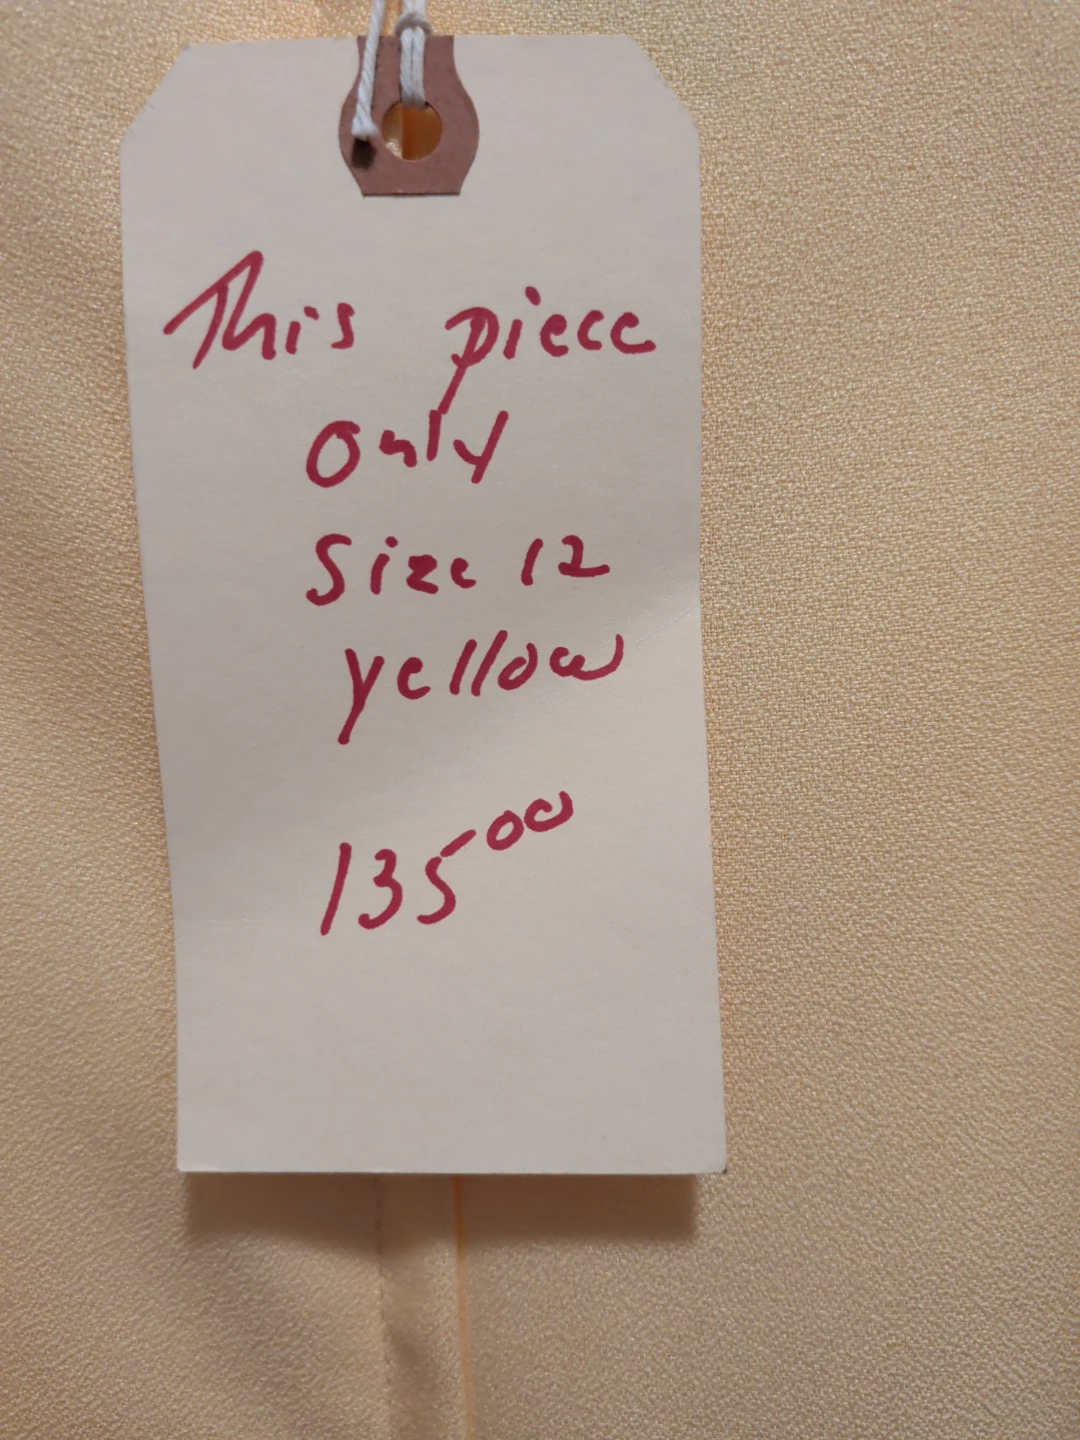 This piece
only
Size 12
yellow
135⁰⁰